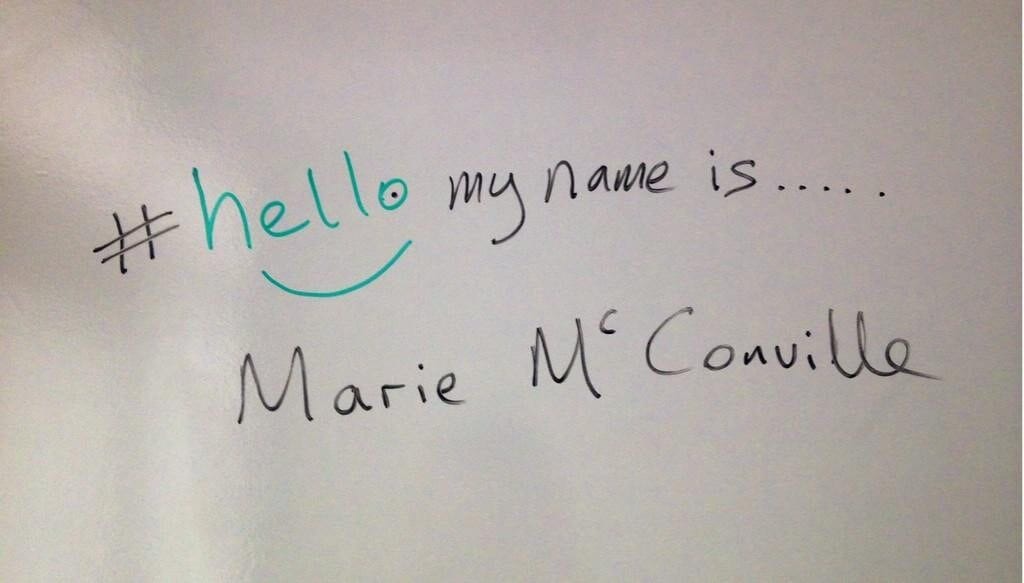 #hello my name is.....
Marie McConville